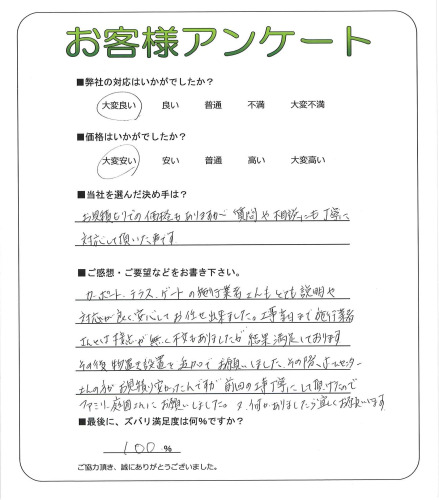 お客様アンケート
■弊社の対応はいかがでしたか？
大変良い 良い 普通 不満 大変不満
■価格はいかがでしたか？
大変安い 安い 普通 高い 大変高い
■当社を選んだ決め手は？
お見積もりでの価格もありますが 質問や相談にも丁寧に
対応して頂いた事です
■ご感想・ご要望などをお書き下さい。
カーポート、テラス、ゲートの施行業者さんもとても説明や
対応が良く安心してお任せ出来ました。工事当日まで施行業者
さんとは接点が無く不安もありましたが 結果満足しております
その後 物置き設置を追加で お願いしました、その際、ホームセンター
さんの方が お見積り安かったんですが 前回の工事丁寧にして頂けたので
ファミリー庭園さんにお願いしました。又、何かありましたら宜しくお願います
■最後に、ズバリ満足度は何％ですか？
100 ％
ご協力頂き、誠にありがとうございました。